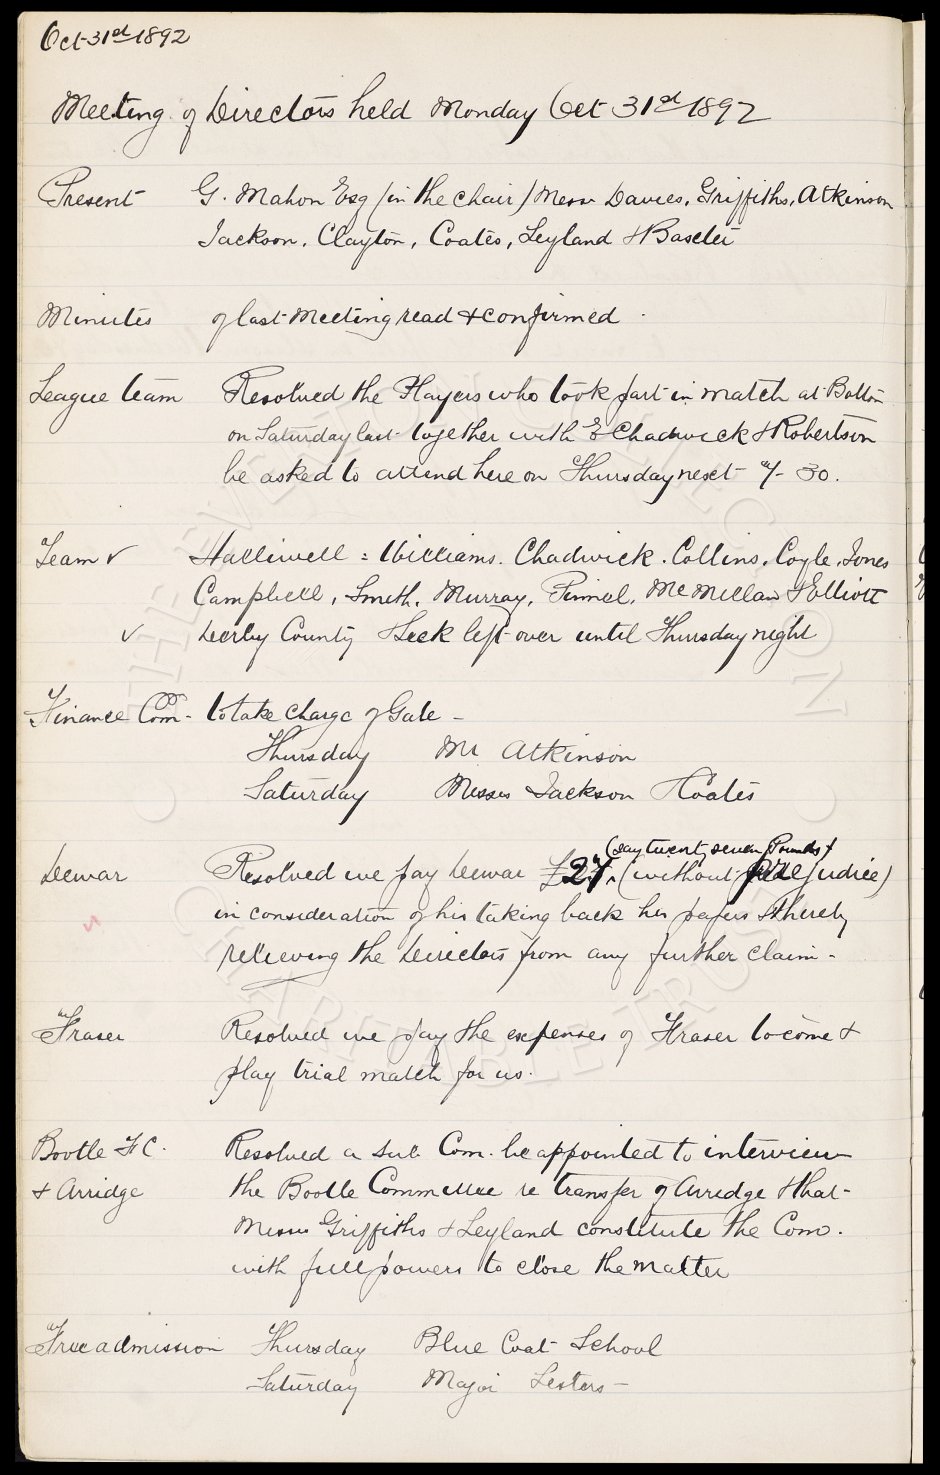 Oct 31st 1892
Meeting of Directors held Monday Oct 31st 1892
Present G. Mahon Esq (in the chair) Messrs Davies, Griffiths, Atkinson
Jackson, Clayton, Coates, Leyland & Baxter
Minutes of last Meeting read & confirmed
League team Resolved the Players who took part in match at Bolton
on Saturday last together with E Chadwick & Robertson
be asked to attend here on Thursday next 7-30.
Team v Halliwell = Williams. Chadwick. Collins, Coyle, Jones
Campbell, Smith, Murray, Pinnel, McMillan & Elliott
v Derby County & Leek left over until Thursday night
Finance Com- to take charge of Gate -
Thursday Mr Atkinson
Saturday Messrs Jackson & Coates
(say twenty seven Pounds)
Dewar Resolved we pay Dewar £27. (without prejudice)
in consideration of his taking back his papers & thereby
relieving the Directors from any further claim -
Fraser Resolved we pay the expenses of Fraser to come &
play trial match for us.
Bootle F C. Resolved a sub Com. be appointed to interview
& Arridge the Bootle Committee re transfer of Arridge & that
Messrs Griffiths & Leyland constitute the Com.
with full powers to close the matter
Free admission Thursday Blue Coat School
Saturday Major Lesters -
THE EVERTON